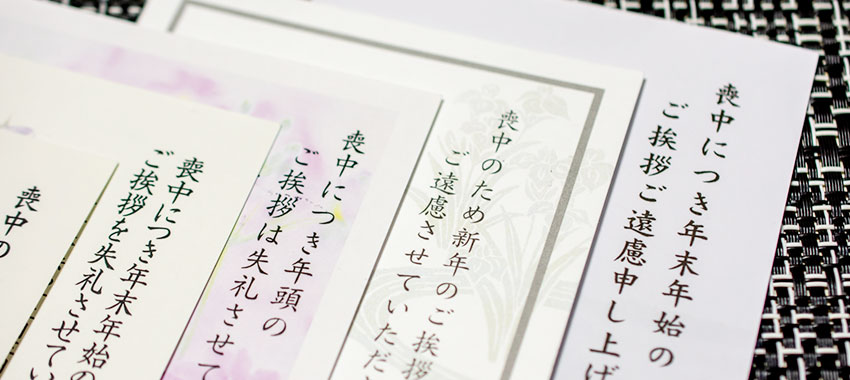 喪中につき年末年始の
ご挨拶ご遠慮申し上げ
喪中のため新年のご挨拶
ご遠慮させていただ
喪中につき年頭の
ご挨拶は失礼させて
喪中につき年末年始の
ご挨拶を失礼させてい
喪中の